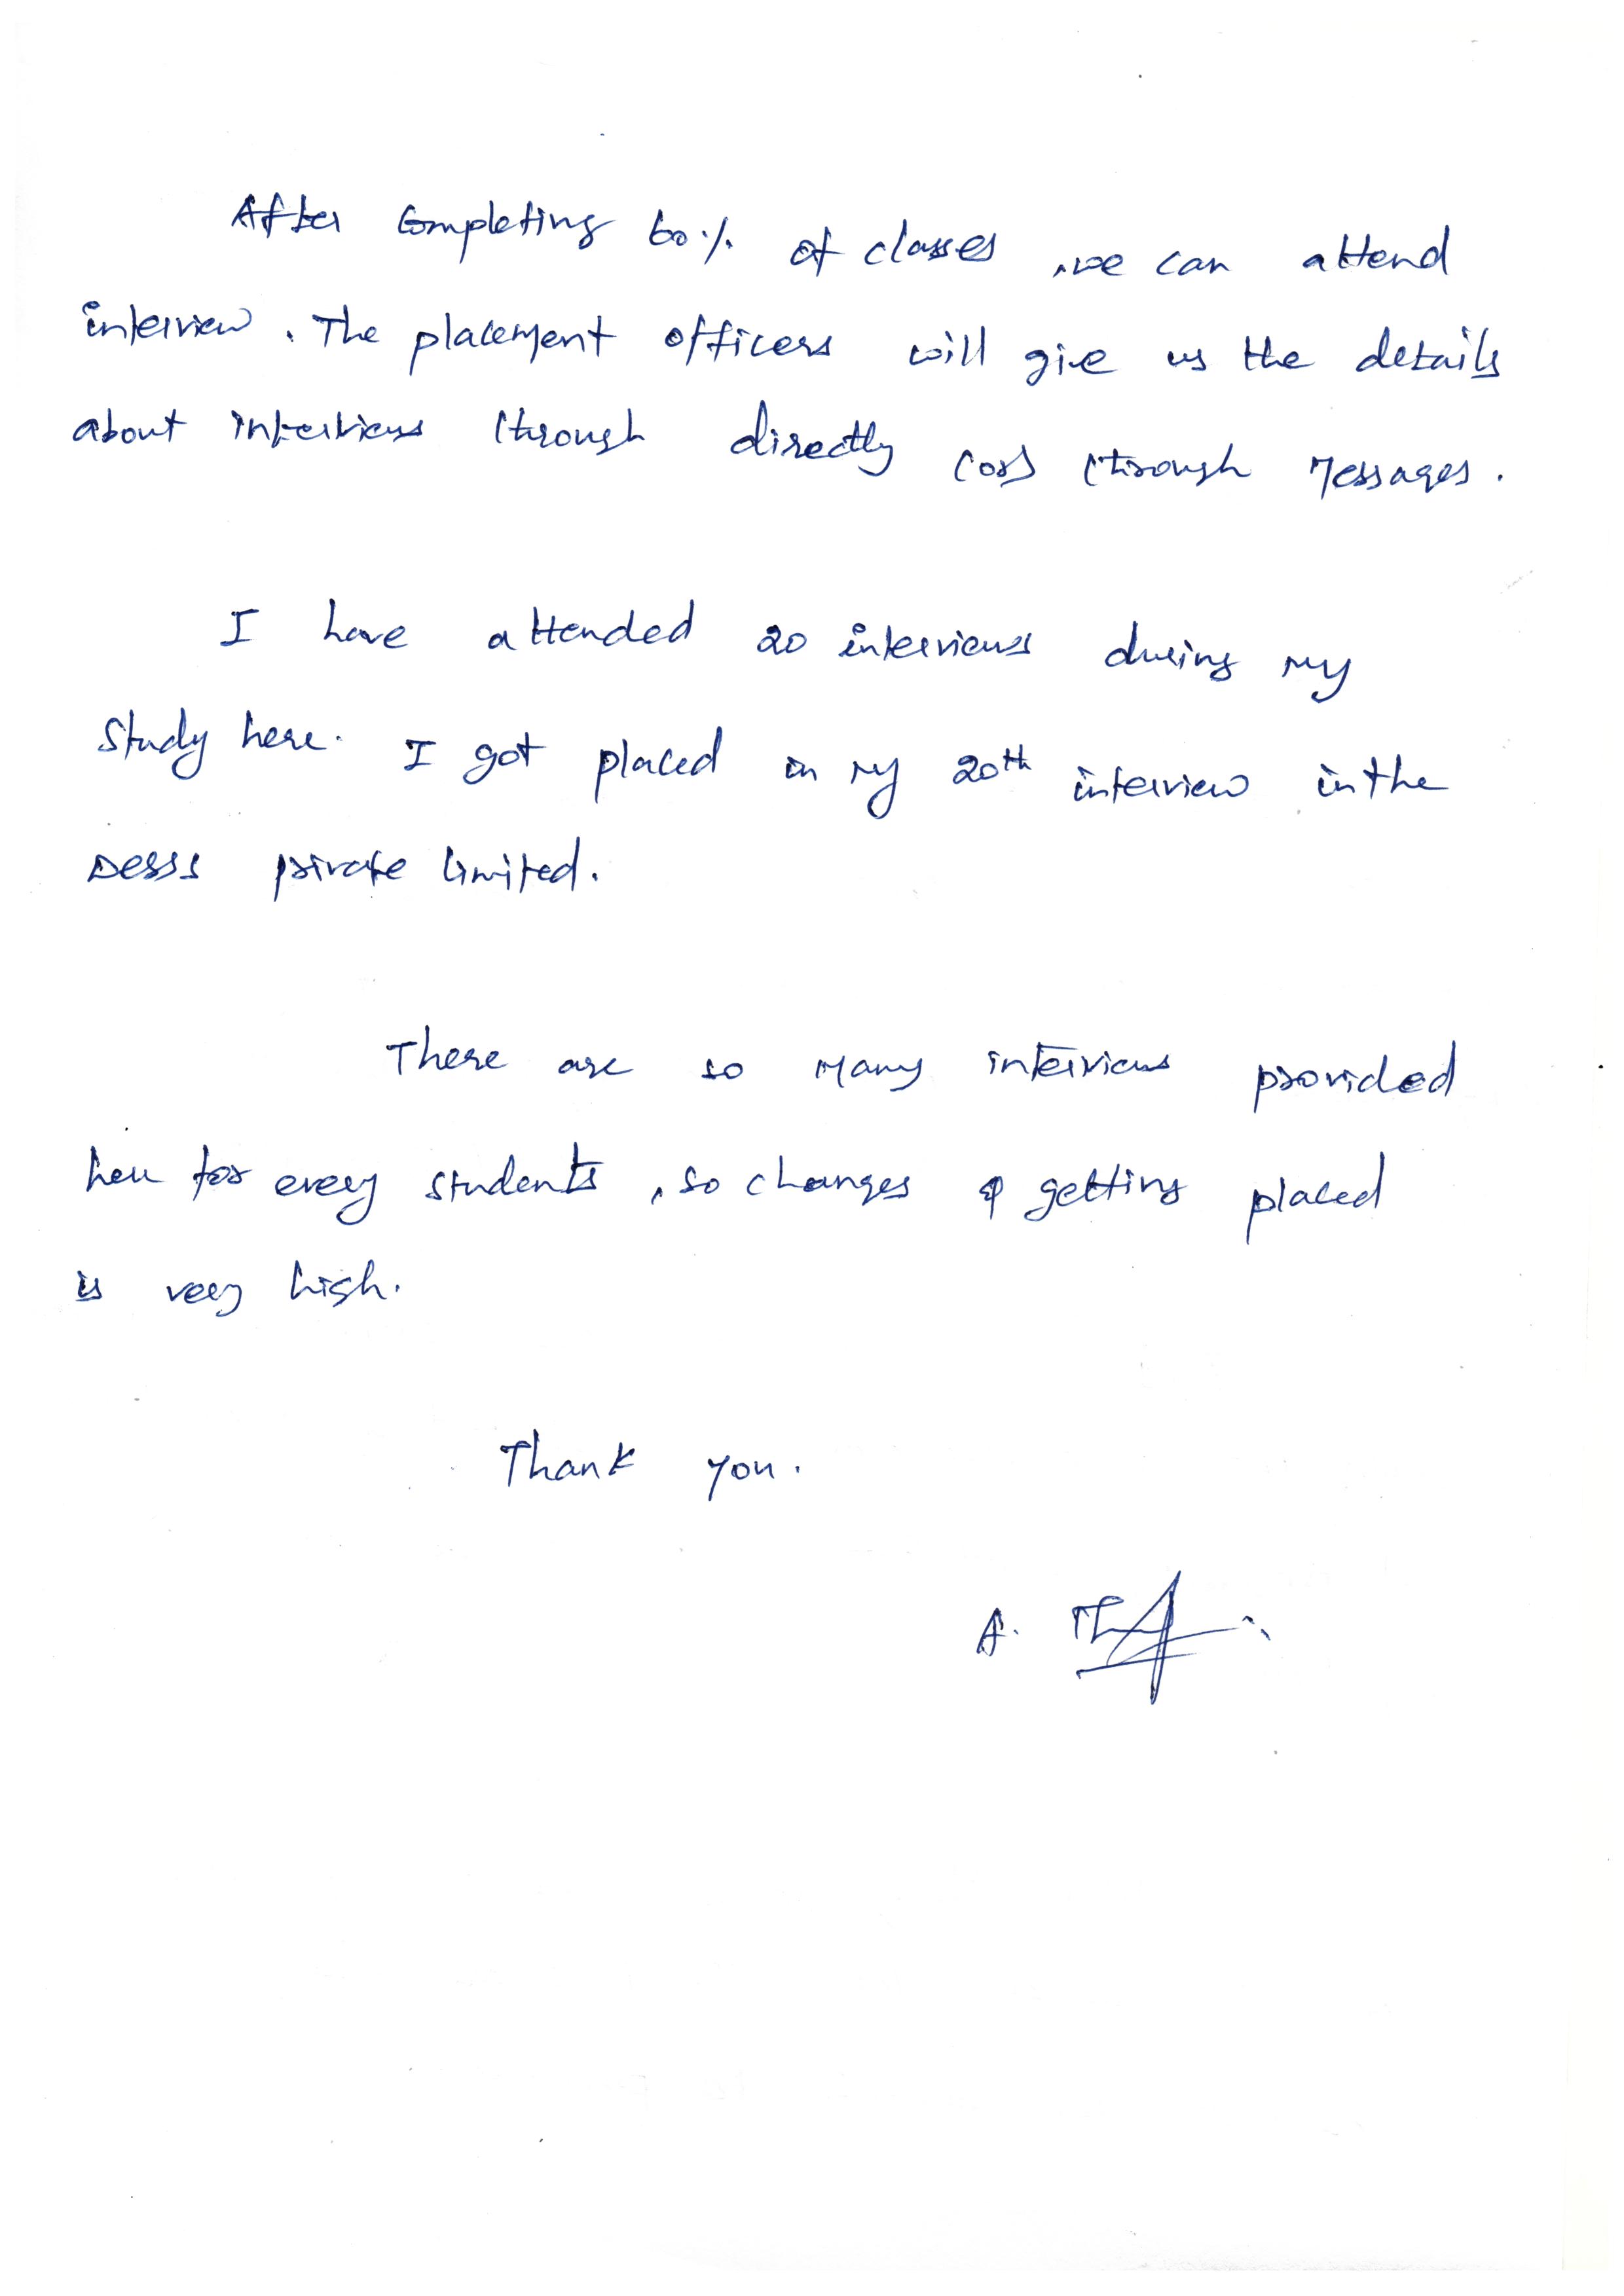 After Completing 60% of classes, we can attend
interview. The placement officers will give us the details
about interviews through directly (or) through Messages.
I have attended 20 interviews during my
Study here. I got placed in my 20th interview in the
DESSS private limited.
There are so many interviews provided
here for every students, so changes of getting placed
is very high.
Thank you.
A.